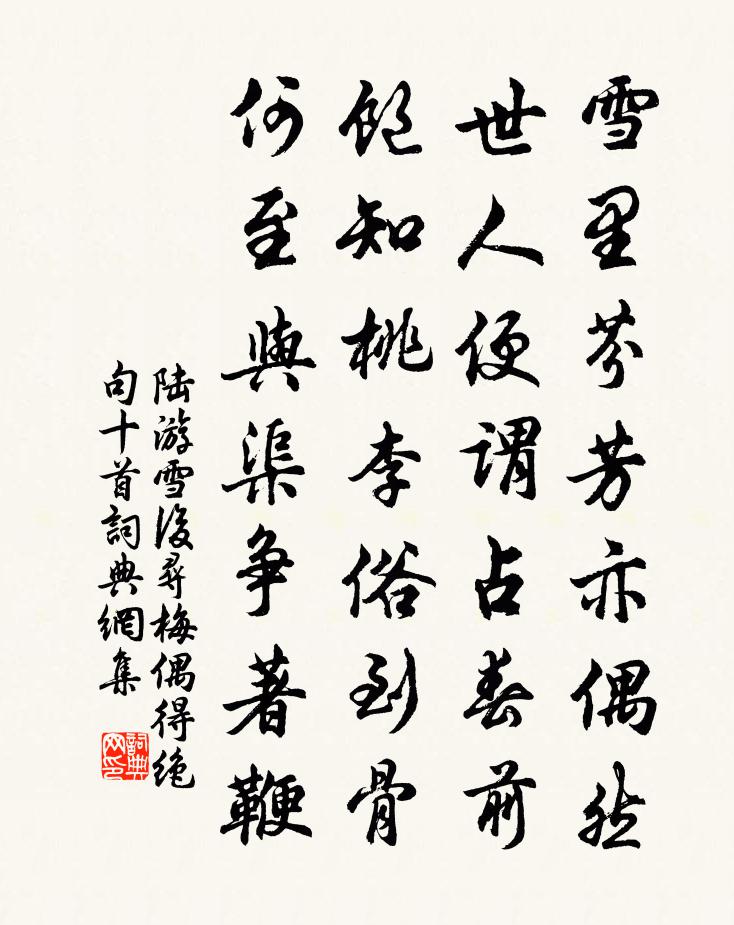 雪里芬芳亦偶然
世人便谓占春前
饱知桃李俗到骨
何至與渠争著鞭
陆游雪後尋梅偶得绝
句十首詞典網集
詞典
网印